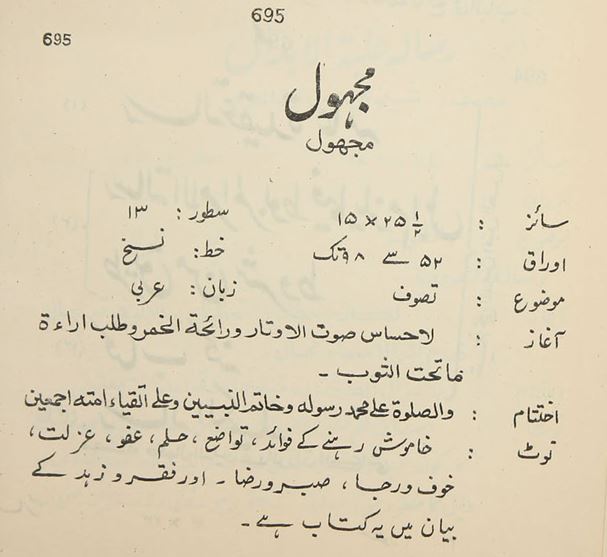 695
695
مجہول
مجھول
سائز : ۲۵½ × ۱۵ سطور: ۱۳
اوراق : ۵۲ سے ۹۸ تک خط: نسخ
موضوع : تصوف زبان: عربی
آغاز : لاحساس صوت الاوتار ورائحۃ الخمر وطلب اراءۃ
ماتحت الثوب ۔
اختتام : والصلوۃ علی محمد رسولہ وخاتم النبیین وعلی اتقیاء امتہ اجمعین
نوٹ : خاموش رہنے کے فوائد، تواضع، حلم، عفو، عزلت،
خوف ورجا، صبر ورضا ۔ اور فقر و زہد کے
بیان میں یہ کتاب ہے ۔